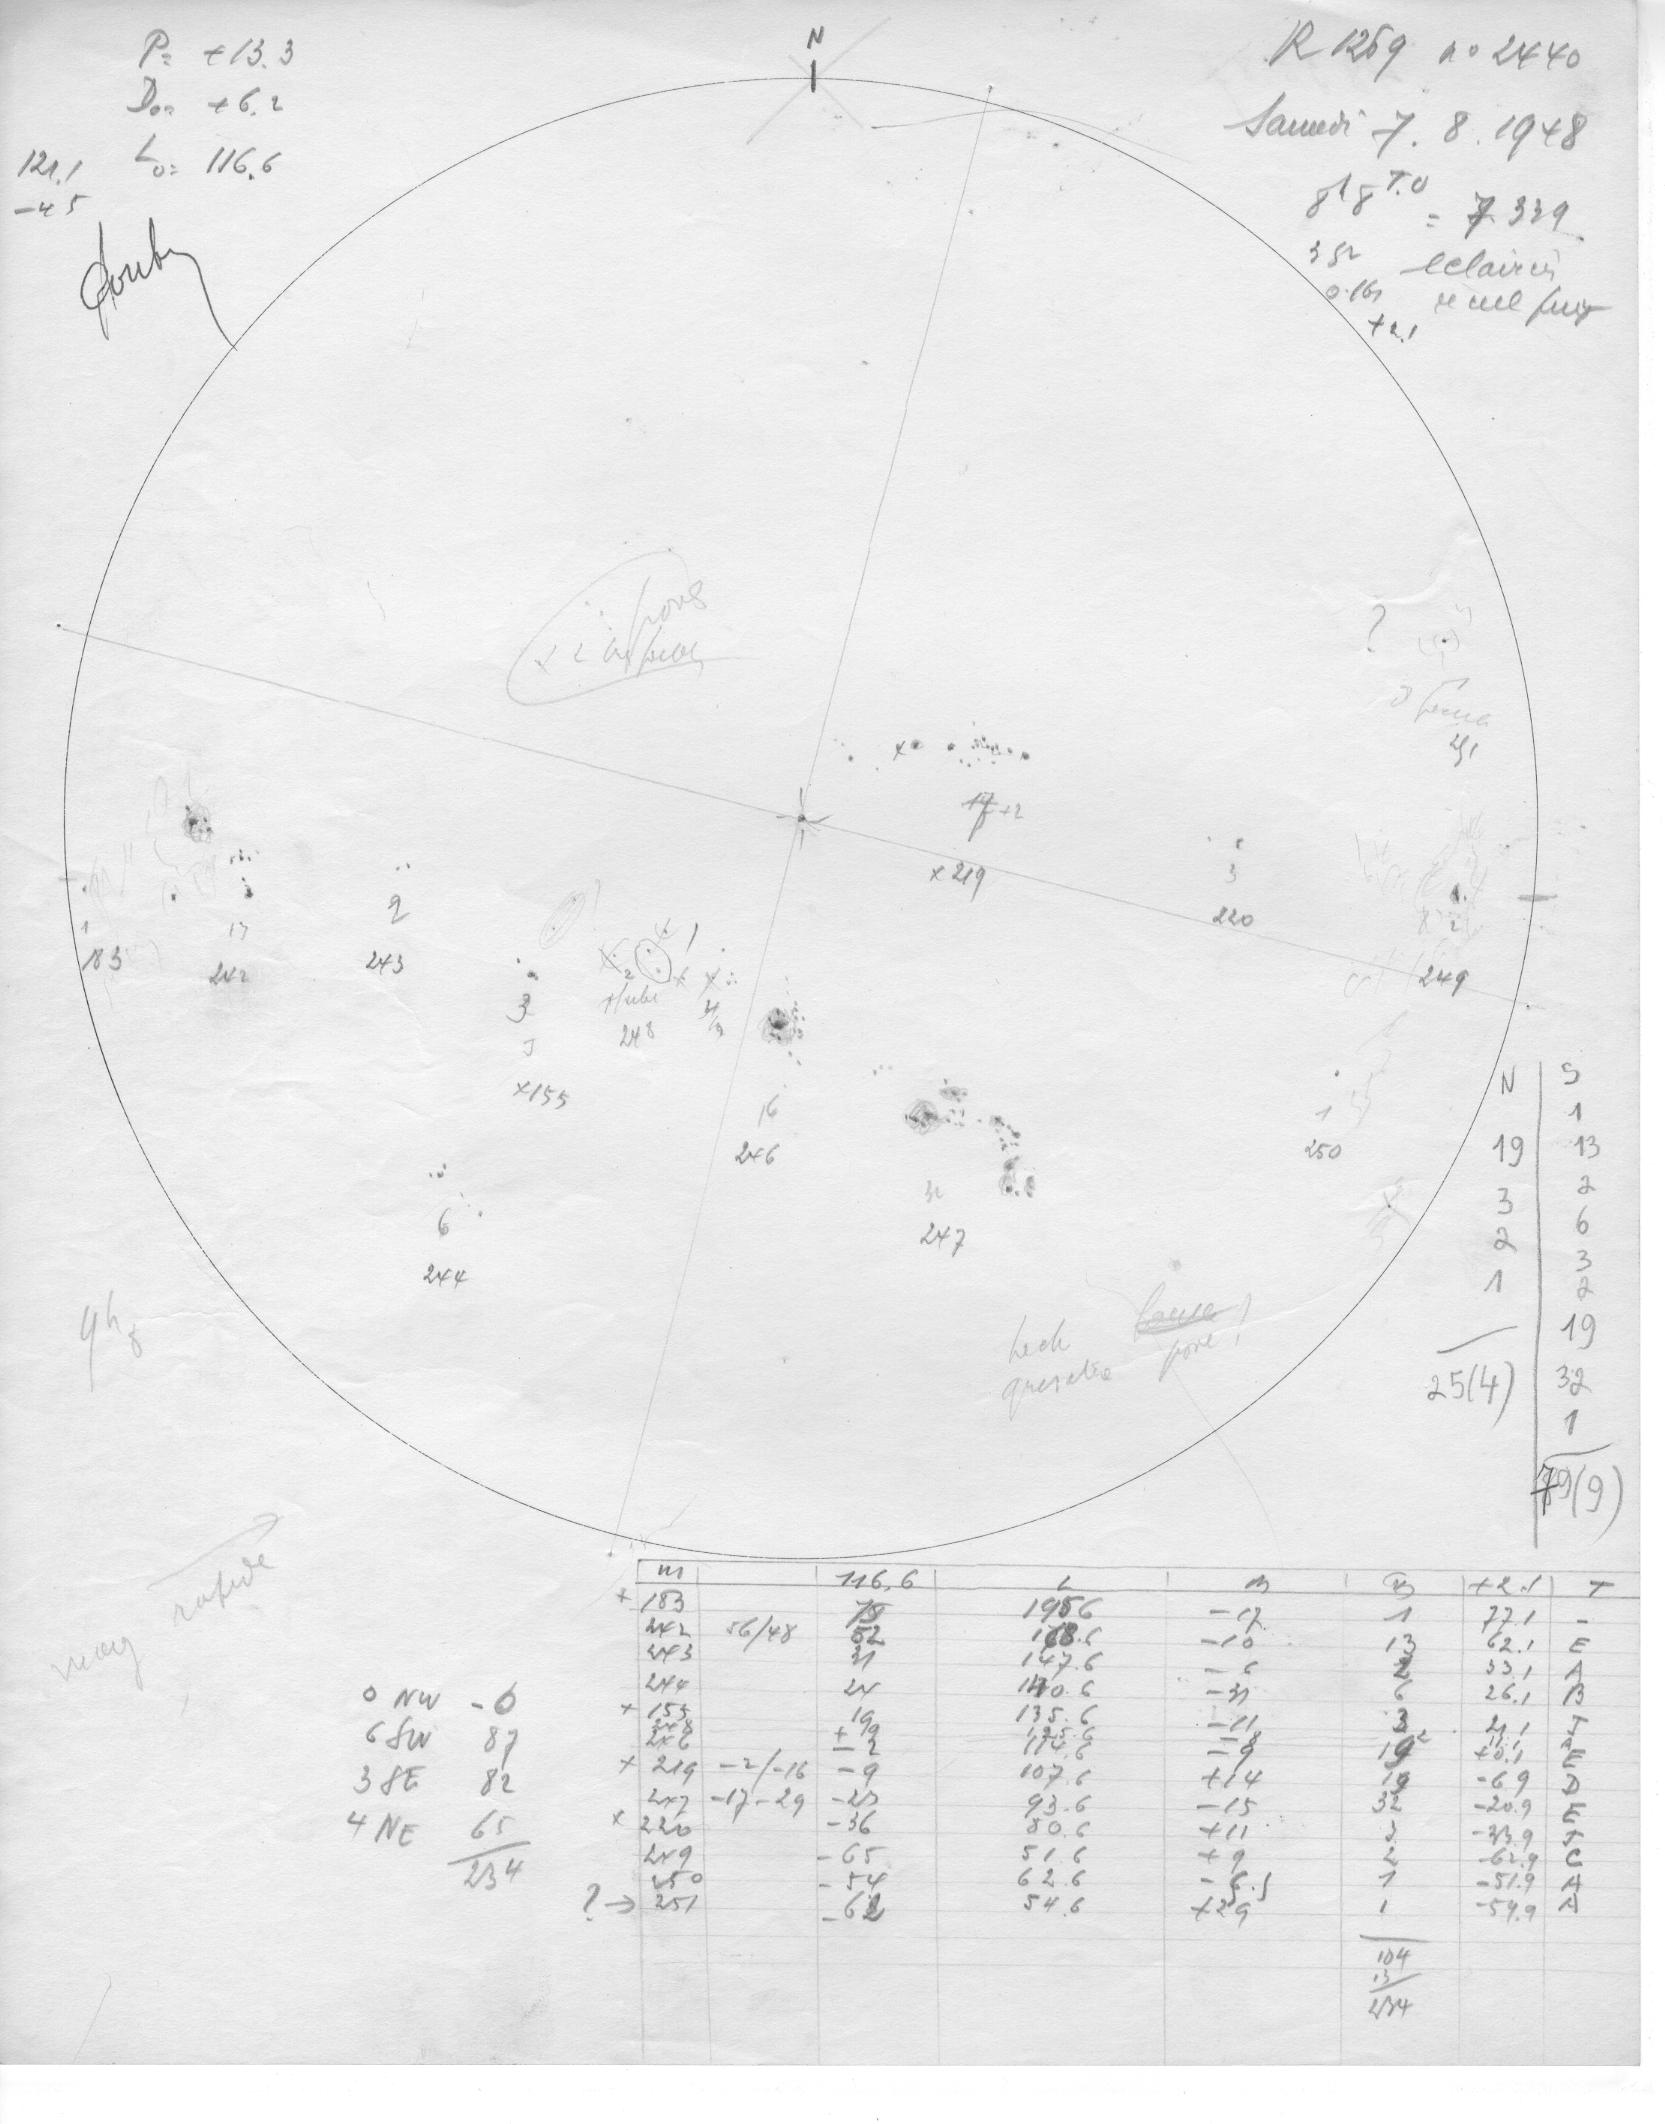 P= +13.3
Do= +6.2
Lo= 116.6
121.1
-4.5
N
R 1259 no 2440
Samedi 7. 8. 1948
8h8 T.U
= 7.339
+2.1
pores
?
251
17+2
×219
3
220
2
249
1
183
13
242
2
243
3
×155
2
248
16
246
32
247
1
250
6
244
pore !
N S
1
19 13
3 2
2 6
1 3
2
19
25(4) 32
1
79(9)
rapide
0 NW - 0
6 SW 87
3 SE 82
4 NE 65
234
m 116.6 L +2.1 T
× 183 195.6 -17 1 77.1 -
242 56/48 52 168.6 -10 13 62.1 E
243 31 147.6 -6 2 33.1 A
244 24 140.6 -31 6 26.1 B
× 155 19 135.6 -11 3 21.1 J
248 +9 125.6 -8 2
246 -2 114.6 -9 19 +0.1 E
× 219 -2/-16 -9 107.6 +14 19 -6.9 D
247 -17 -29 -23 93.6 -15 32 -20.9 E
× 220 -36 80.6 +11 3 -33.9 J
249 -65 51.6 +9 2 -62.9 C
250 -54 62.6 1 -51.9 A
? → 251 -62 54.6 +29 1 -59.9 A
104
13
234